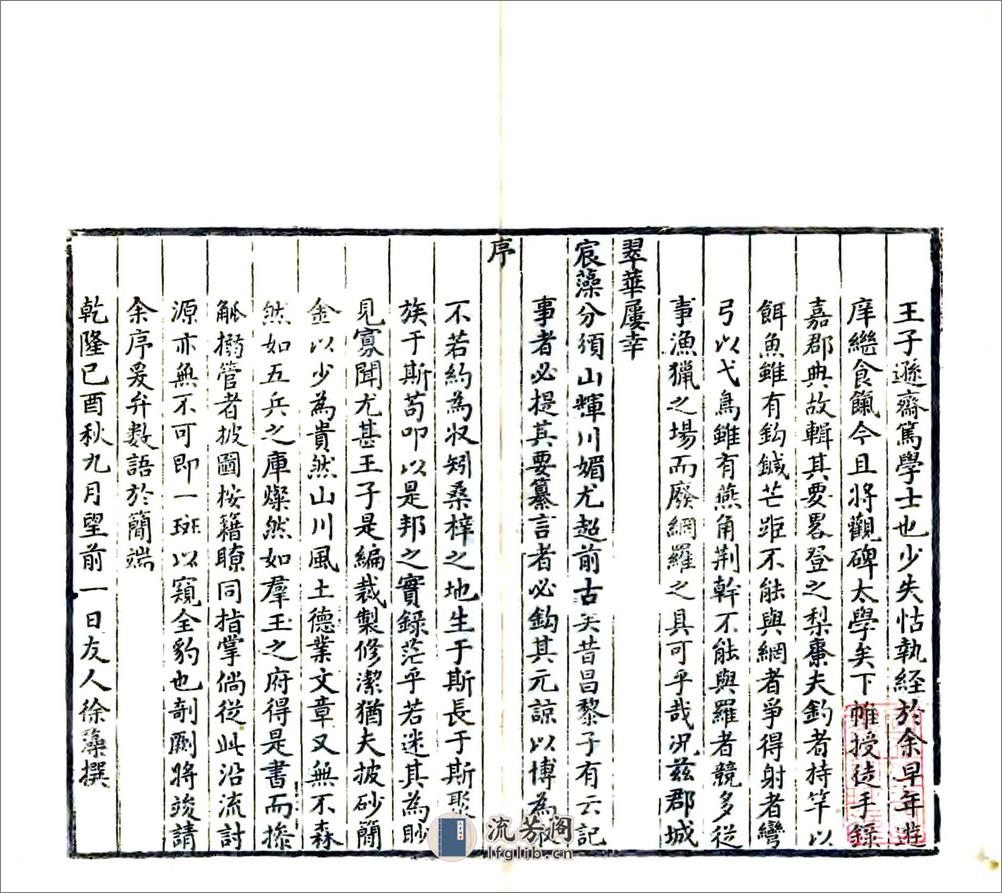 王子遜齋篤學士也少失怙執經於余早年遊
庠繼食餼今且將觀碑太學矣下帷授徒手錄
嘉郡典故輯其要畧登之梨棗夫釣者持竿以
餌魚雖有鈎鍼芒距不能與網者爭得射者彎
弓以弋鳥雖有燕角荆幹不能與羅者競多從
事漁獵之場而廢網羅之具可乎哉况兹郡城
翠華屢幸
宸藻分頒山輝川媚尤超前古矣昔昌黎子有云記
事者必提其要纂言者必鈎其元諒以博為
序
不若約為収矧桑梓之地生于斯長于斯聚
族于斯苟叩以是邦之實錄茫乎若迷其為眇
見寡聞尤甚王子是編裁製修潔猶夫披砂簡
金以少為貴然山川風土德業文章又無不森
然如五兵之庫燦然如羣玉之府得是書而摻
觚搦管者披圖按籍瞭同指掌倘從此沿流討
源亦無不可即一斑以窺全豹也剞劂將竣請
余序爰弁數語於簡端
乾隆己酉秋九月望前一日友人徐藻撰
流芳阁
lfglib.cn